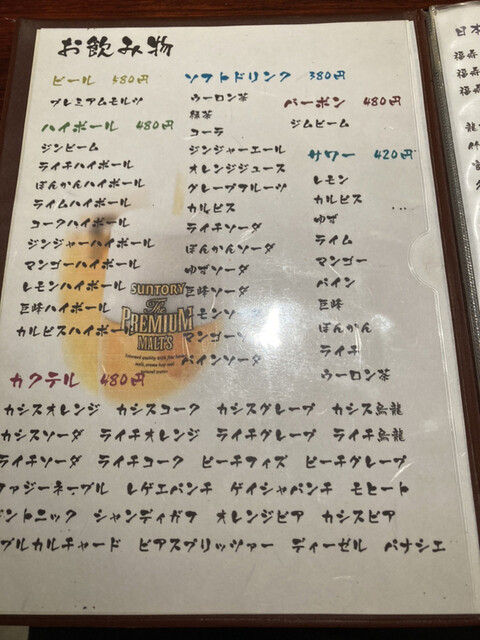 お飲み物
ビール 580円
プレミアムモルツ
ハイボール 480円
ジンビーム
ライチハイボール
ぽんかんハイボール
ライムハイボール
コークハイボール
ジンジャーハイボール
マンゴーハイボール
レモンハイボール
巨峰ハイボール
カルピスハイボー
ソフトドリンク 380円
ウーロン茶
緑茶
コーラ
ジンジャーエール
オレンジジュース
グレープフルーツ
カルピス
ライチソーダ
ぽんかんソーダ
ゆずソーダ
巨峰ソーダ
モンソ
マンゴー
パインソーダ
バーボン 480円
ジムビーム
サワー 420円
レモン
カルピス
ゆず
ライム
マンゴー
パイン
巨峰
ぽんかん
ライチ
ウーロン茶
SUNTORY
The
PREMIUM
MALT'S
カクテル 480円
カシスオレンジ カシスコーク カシスグレープ カシス烏龍
カシスソーダ ライチオレンジ ライチグレープ ライチ烏龍
ライチソーダ ライチコーク ピーチフィズ ピーチグレープ
ファジーネーブル レゲエパンチ ゲイシャパンチ モヒート
ントニック シャンディガフ オレンジビア カシスビア
ブルカルチャード ビアスプリッツァー ディーゼル パナシェ
日本
福寿
福寿
福寿